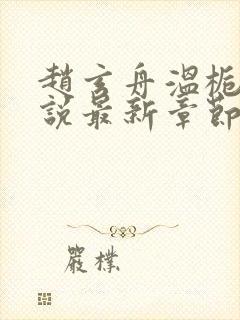 趙玄舟溫梔
說最新章節
嚴樸